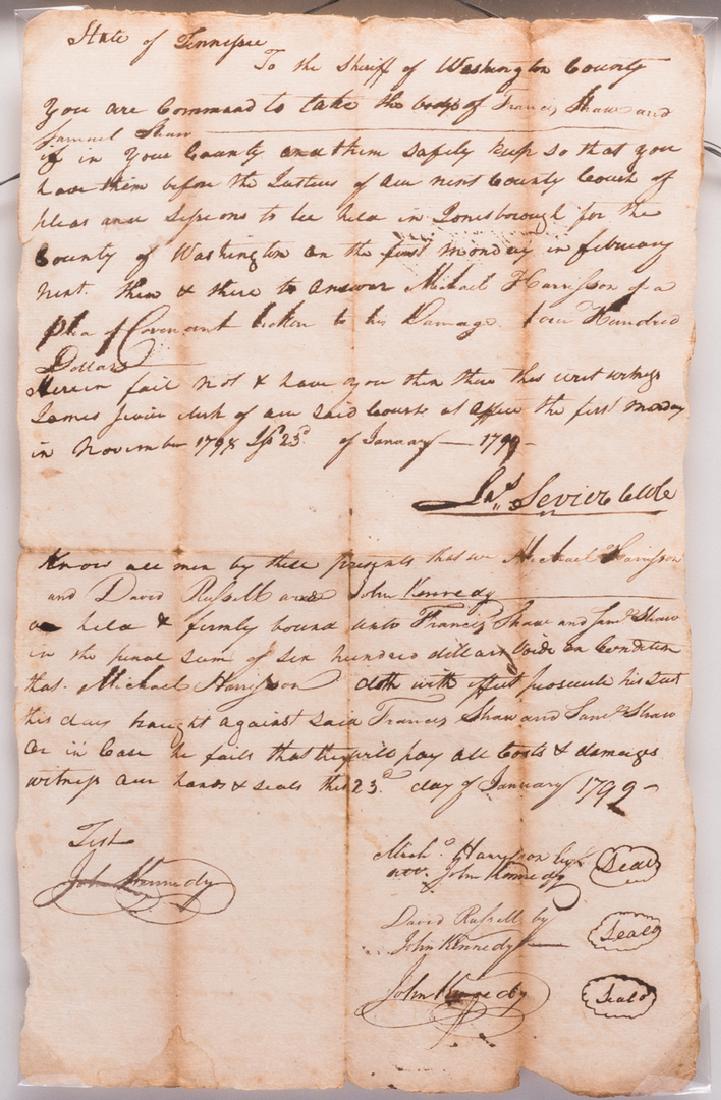 State of Tennessee
To the Sheriff of Washington County
You are Command to take the bodys of Francis Shaw and
Samuel Shaw
if in your County and them Safely keep so that you
have them before the Justices of our next County Court of
pleas and Sessions to be held in Jonesborough for the
County of Washington on the first Monday in february
next. then & there to answer Michael Harrisson of a
plea of Covenant broken to his Damage four Hundred
Dollars
Herein fail not & have you then there this writ witness
James Sevier clerk of our said Court at office the first Monday
in November 1798 Iss 23d. of January 1799
Jas Sevier Clk
Know all men by these presents that we Michael Harrisson
and David Russell and John Kennedy
are held & firmly bound unto Francis Shaw and Saml Shaw
in the penal sum of six hundred dollars Void on Condition
that. Michael Harrisson doth with effect prosecute his suit
this day brought against said Francis Shaw and Saml Shaw
Or in Case he fails that they will pay all Costs & damages
witness our hands & seals this 23d day of January 1799
Test
John Kennedy
Michl Harrisson by
John Kennedy
Seal
David Russell by
John Kennedy
Seal
John Kennedy
Seal